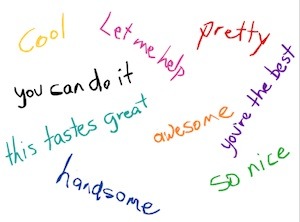 Cool
Let me help
pretty
you can do it
you're the best
this tastes great
awesome
handsome
so nice